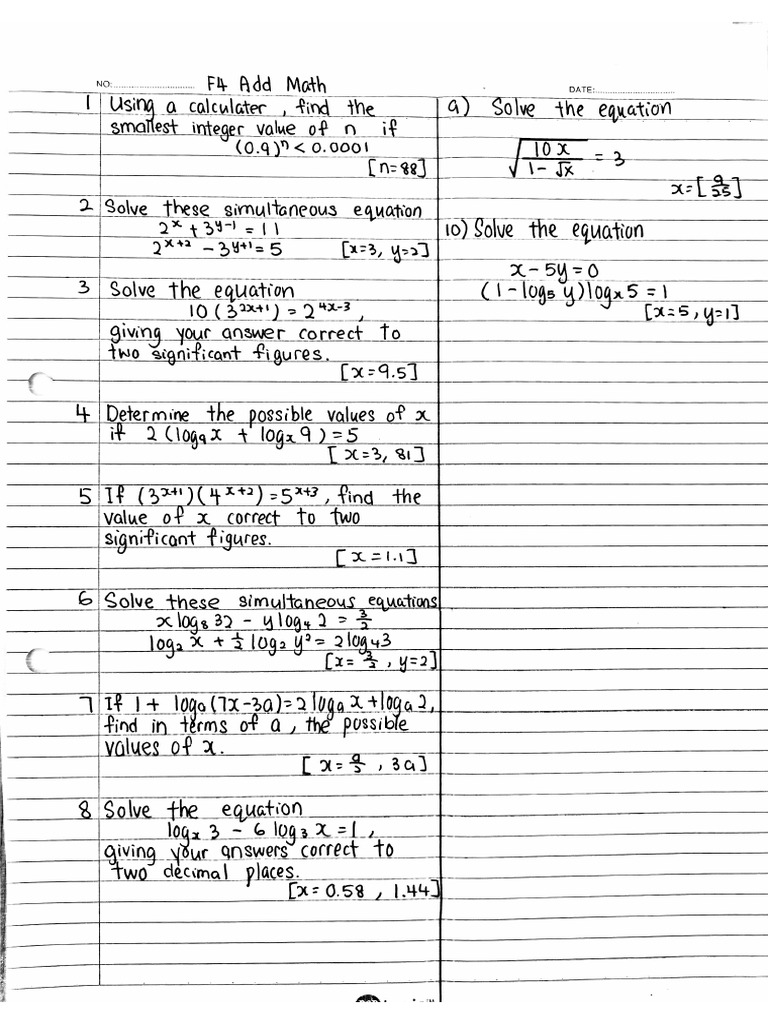 NO: F4 Add Math DATE:
1 Using a calculater, find the
smallest integer value of n if
(0.9)ⁿ < 0.0001
[n=88]
2 Solve these simultaneous equation
2ˣ + 3ʸ⁻¹ = 11
2ˣ⁺² - 3ʸ⁺¹ = 5 [x=3, y=2]
3 Solve the equation
10(3²ˣ⁺¹) = 2⁴ˣ⁻³,
giving your answer correct to
two significant figures.
[x=9.5]
4 Determine the possible values of x
if 2(log₉x + logₓ9) = 5
[x=3, 81]
5 If (3ˣ⁺¹)(4ˣ⁺²) = 5ˣ⁺³, find the
value of x correct to two
significant figures.
[x=1.1]
6 Solve these simultaneous equations
x log₈ 32 - y log₄ 2 = 3/2
log₂ x + 1/2 log₂ y² = 2 log₄3
[x= 3/2, y=2]
7 If 1 + logₐ(7x-3a) = 2 logₐ x + logₐ 2,
find in terms of a, the possible
values of x.
[x= a/2, 3a]
8 Solve the equation
logₓ 3 - 6 log₃ x = 1,
giving your answers correct to
two decimal places.
[x=0.58, 1.44]
9) Solve the equation
√(10x/(1-√x)) = 3
x=[9/25]
10) Solve the equation
x-5y=0
(1-log₅ y)logₓ5 = 1
[x=5, y=1]